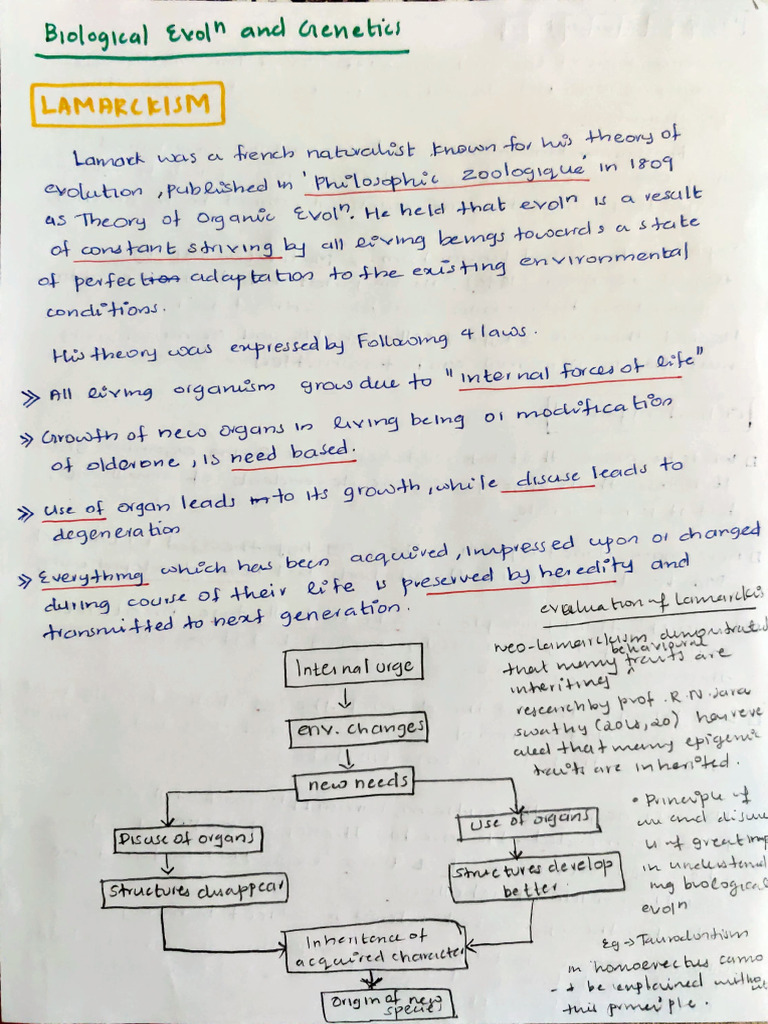 Biological Evolⁿ and Genetics
LAMARCKISM
Lamark was a french naturalist known for his theory of
evolution, published in 'Philosophic zoologique' in 1809
as Theory of Organic Evolⁿ. He held that evolⁿ is a result
of constant striving by all living beings towards a state
of perfection adaptation to the existing environmental
conditions.
His theory was expressed by Following 4 laws.
» All living organism grow due to "internal forces of life"
» Growth of new organs in living being or modification
of older one, is need based.
» Use of organ leads to its growth, while disuse leads to
degeneration
» Everything which has been acquired, impressed upon or changed
during course of their life is preserved by heredity and
transmitted to next generation.
evaluation of Lamarckis
neo-lamarckism demonstrated
that many behavioural traits are
inheriting
research by prof. R.N.
swathy
that many epigeni
traits are inherited.
Internal urge
env. changes
new needs
Disuse of organs
Use of organs
Structures disappear
Structures develop
better.
Inheritence of
acquired character
Origin of new
species
• Principle of
and disu
of great imp
in understand
ing biological
evolⁿ
Eg → Taurodontism
in homoerectus canno
t be explained witho
ut
this principle.